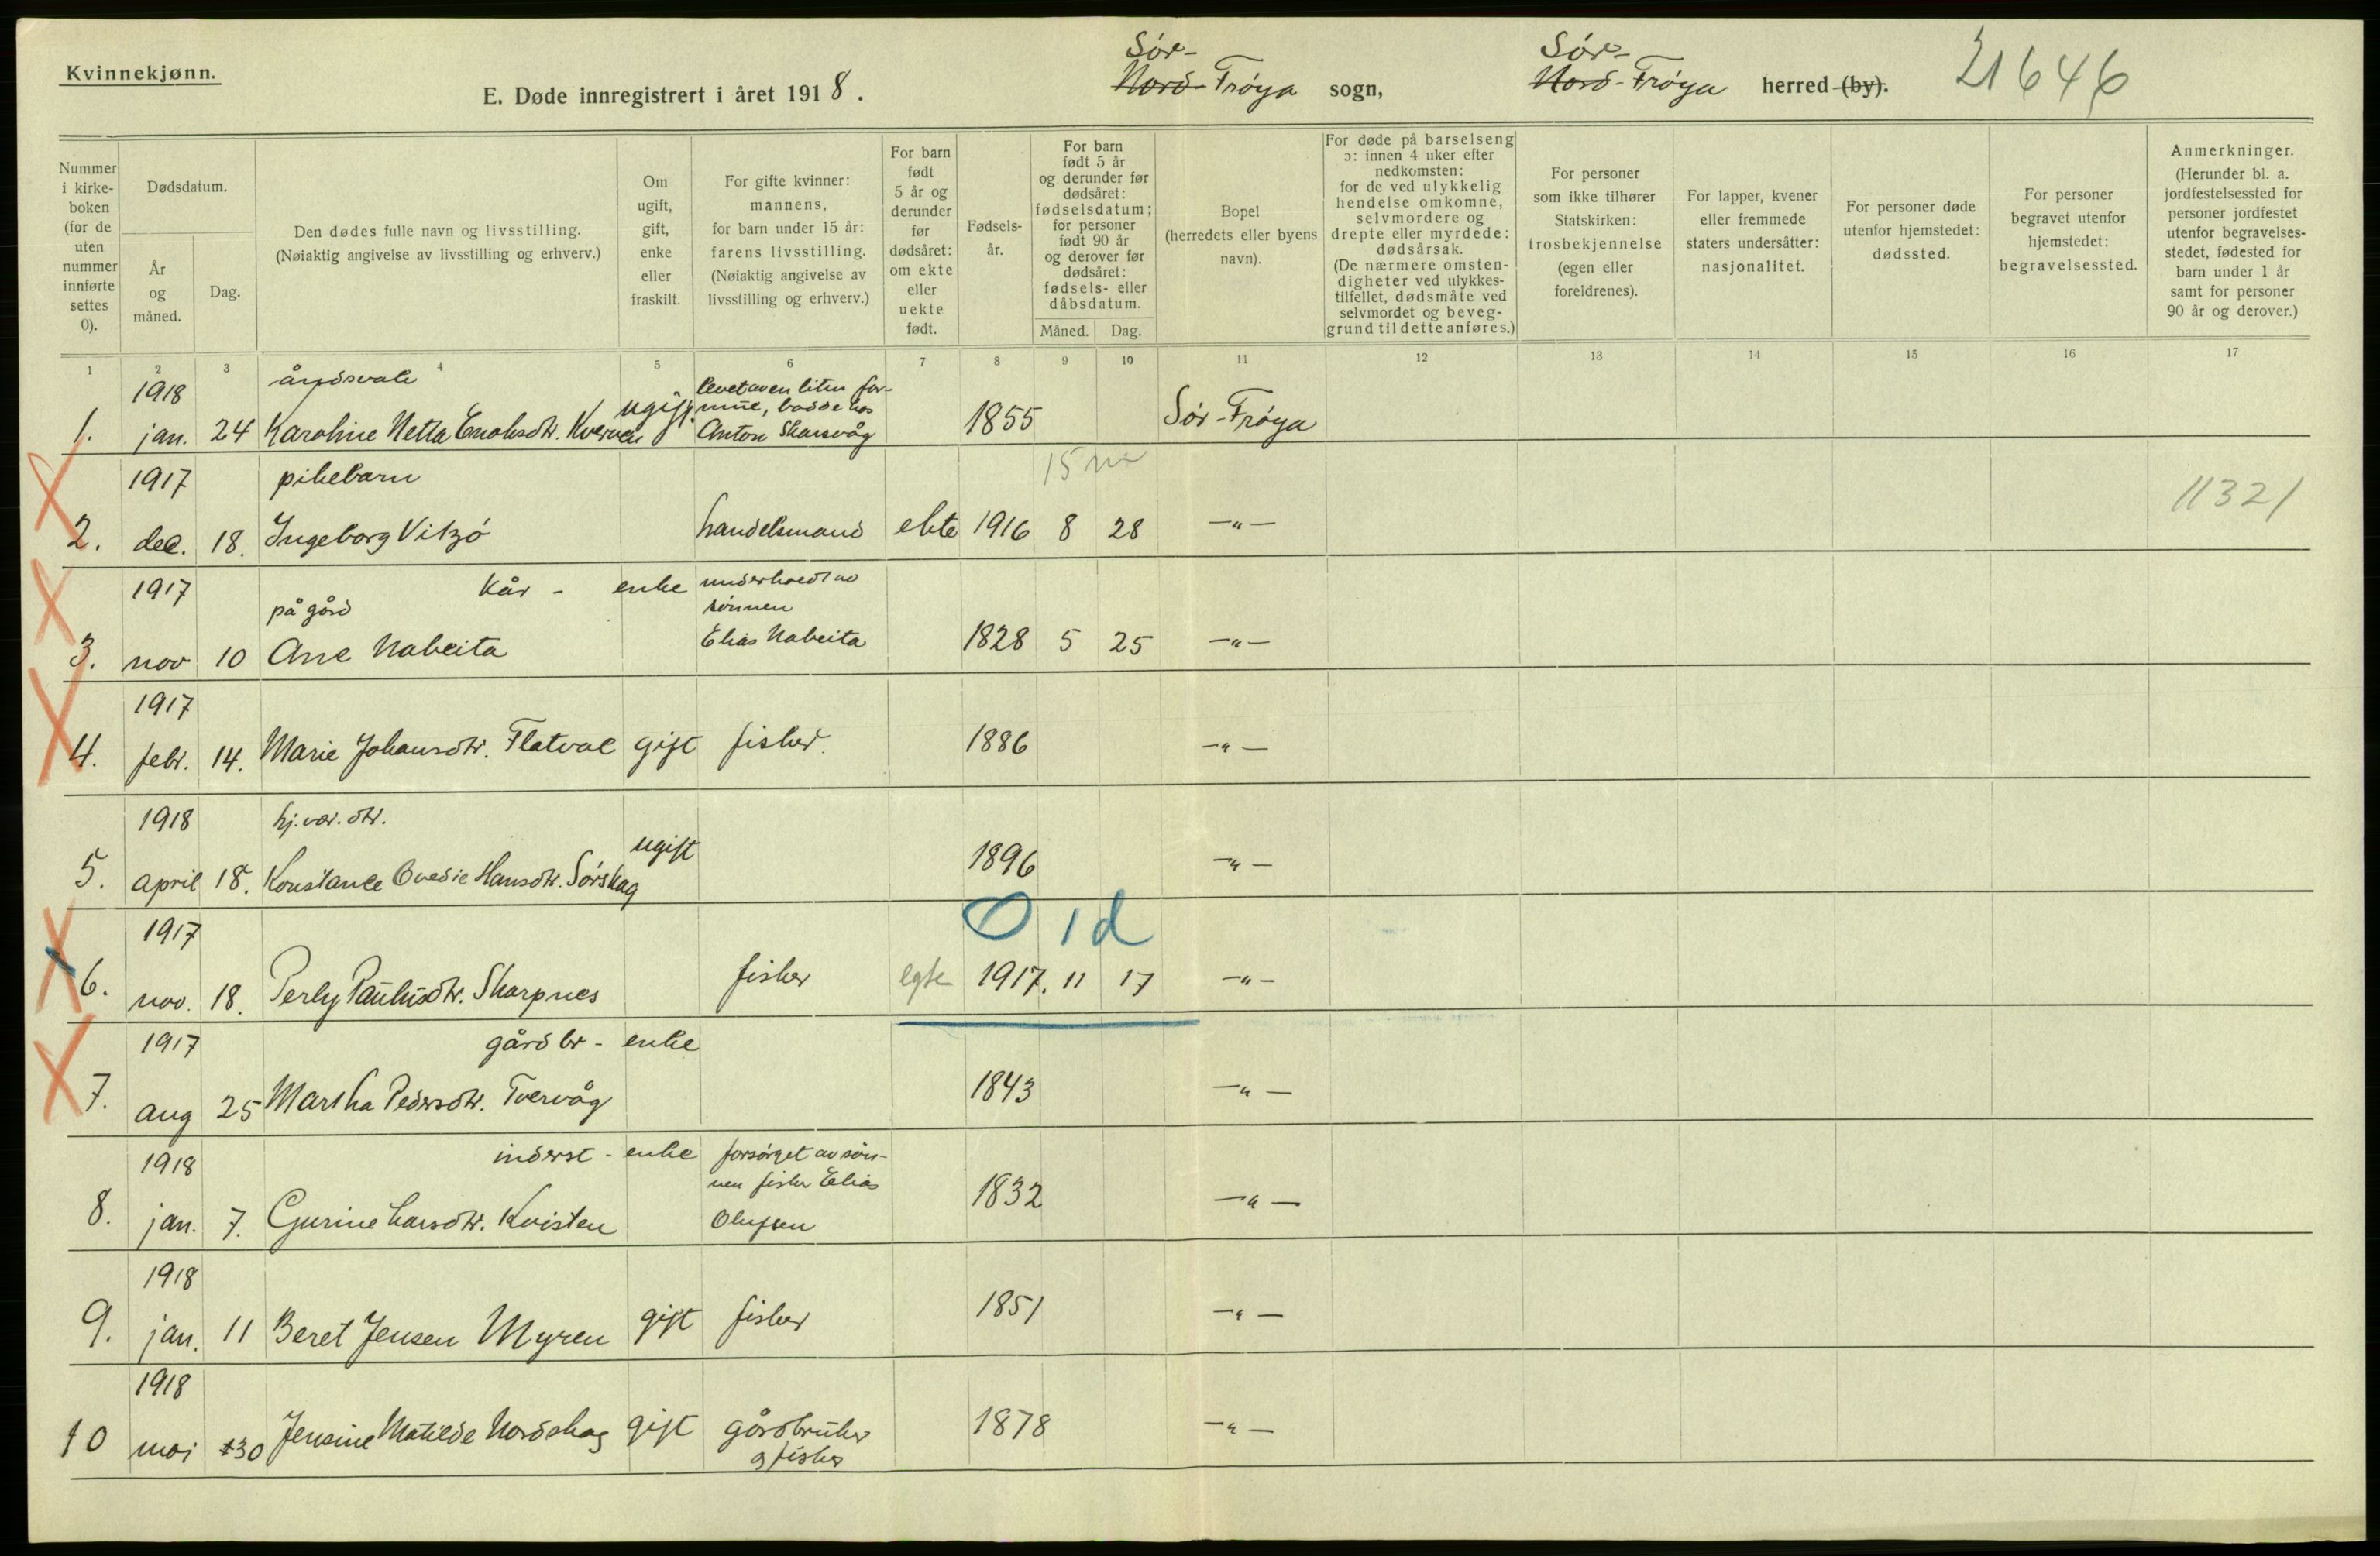 Kvinnekjønn.
E. Døde innregistrert i året 1918.
Sør-
Nord-Frøya sogn,
Sør-
Nord-Frøya herred (by).
21646
Nummer i kirke-boken (for de uten nummer innførte settes 0).
Dødsdatum.
År og måned.
Dag.
Den dødes fulle navn og livsstilling.
(Nøiaktig angivelse av livsstilling og erhverv.)
Om ugift, gift, enke eller fraskilt.
For gifte kvinner: mannens, for barn under 15 år: farens livsstilling. (Nøiaktig angivelse av livsstilling og erhverv.)
For barn født 5 år og derunder før dødsåret: om ekte eller uekte født.
Fødsels-år.
For barn født 5 år og derunder før dødsåret: fødselsdatum; for personer født 90 år og derover før dødsåret: fødsels- eller dåbsdatum.
Måned.
Dag.
Bopel (herredets eller byens navn).
For døde på barselseng ɔ: innen 4 uker efter nedkomsten: for de ved ulykkelig hendelse omkomne, selvmordere og drepte eller myrdede: dødsårsak. (De nærmere omsten-digheter ved ulykkes-tilfellet, dødsmåte ved selvmordet og beveg-grund til dette anføres.)
For personer som ikke tilhører Statskirken: trosbekjennelse (egen eller foreldrenes).
For lapper, kvener eller fremmede staters undersåtter: nasjonalitet.
For personer døde utenfor hjemstedet: dødssted.
For personer begravet utenfor hjemstedet: begravelsessted.
Anmerkninger. (Herunder bl. a. jordfestelsessted for personer jordfestet utenfor begravelses-stedet, fødested for barn under 1 år samt for personer 90 år og derover.)
1 2 3 4 5 6 7 8 9 10 11 12 13 14 15 16 17
1918 åndsvak levet av en liten for-
ugift mue, bodde hos
1. jan. 24 Karoline Netta Enoksdtr. Kverven Anton Skarsvåg 1855 Sør-Frøya
1917 pikebarn 15 m
2. dec. 18. Ingeborg Vikzø handelsmand ekte 1916 8 28 —"— 11321
1917 kår - enke underholdt av
på gård sønnen
3. nov 10 Ane Nabeita Elias Nabeita 1828 5 25 —"—
1917
4. febr. 14. Marie Johansdtr. Flatval gift fisker. 1886 —"—
1918 hj.vær. dtr.
5. april 18. Konstance Ovedie Hansdtr. Sørskag ugift 1896 —"—
1917 0 1 d
6. nov. 18. Perly Paulusdtr. Skarpnes fisker egte 1917. 11 17 —"—
1917 gårdbr - enke
7. aug 25 Martha Pedersdtr. Tvervåg 1843 —"—
1918 inderst - enke forsørget av søn-
nen fisker Elias
8. jan. 7. Gurine Larsdtr. Kvisten Olufsen 1832 —"—
1918
9. jan. 11 Beret Jensen Myren gift fisker 1851 —"—
1918
10 mai 30 Jensine Matilde Nordskag gift gårdbruker 1878 —"—
og fisker